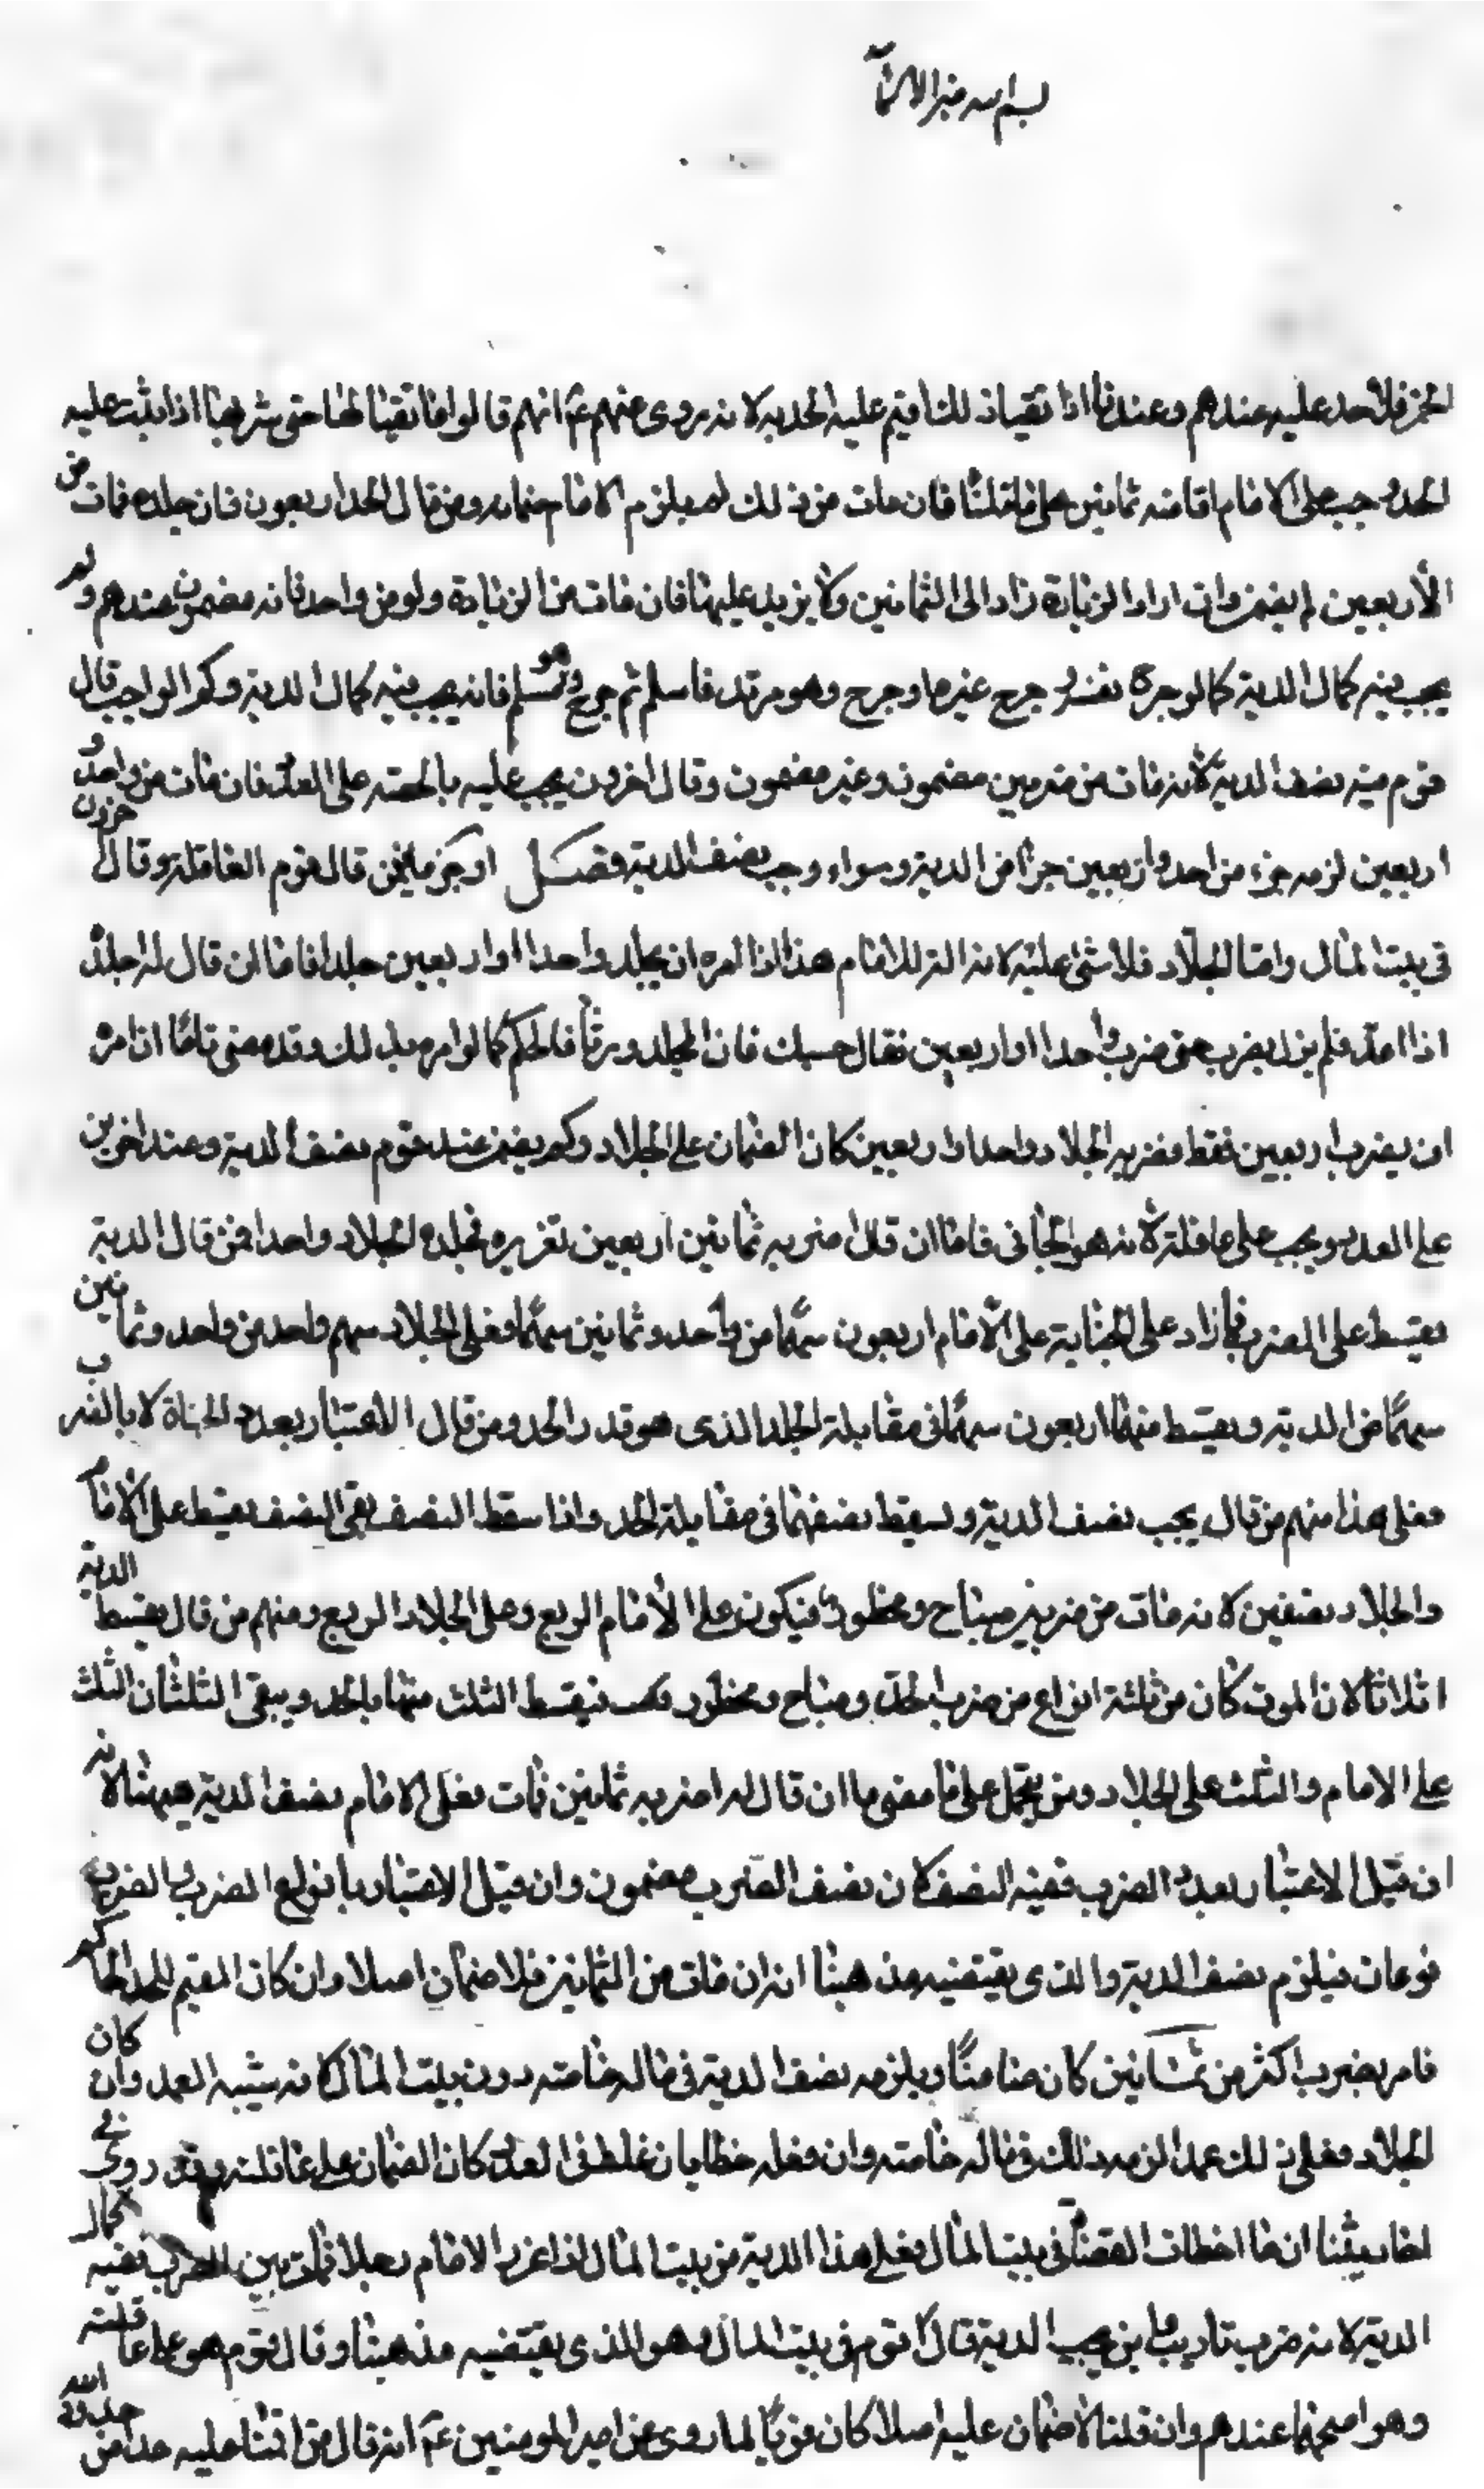 بسم الله خير الاسماء
الخمر فلا حد عليه عندهم وعندنا اذا تقياذ لك اقيم عليه الحد به لانه روى عنهم عم انهم قالوا ما تقيأها حتى شربها اذا ثبت عليه
الحد وجب على الامام اقامته ثمانين على ما قلنا فان مات من ذلك لم يلزم الامام ضمانه ومن قال الحد اربعون فان جلده فمات من
الأربعين لم يضمن وان اراد الزيادة زاد الى الثمانين ولا يزيد عليها فان مات من الزيادة ولو من واحد فانه مضمون عندهم ولم
يجب فيه كمال الدية كما لو جرح نفسه و جرح غيره او جرح وهو مرتد فاسلم ثم جرح وهو مسلم فانه يجب فيه كمال الدية وكم الواجب قال
قوم فيه نصف الدية لأنه مات من ضربين مضمون وغير مضمون وقال اخرون يجب عليه بالحصة على العدد فان مات من واحد و
اربعين لزمه جزء من احد واربعين جزأ من الدية وسواء وجب نصف الدية او جزء ما يضمن قال قوم العاقلة وقال اخرون
في بيت المال واما الجلاد فلا شئ عليه لانه الة للامام هذا اذا امره ان يجلد واحدا او اربعين جلدا فاما ان قال له اجلد
اذا اعد فلم يزل يضرب حتى ضرب واحدا او اربعين فقال حسبك فان المجلود فالحكم كما لو امره بذلك وقد مضى فاما ان امره
ان يضرب اربعين فقط فضربه الجلاد واحدا واربعين كان الضمان على الجلاد وكم يضمن عند قوم نصف الدية وعند اخرين
على العدد ويجب على عاقلته لأنه هو الجانى فاما ان قال اضربه ثمانين اربعين تعزيره فجلده الجلاد واحدا فمن قال الدية
يقسط على الضرب فما زاد على الجناية على الامام اربعون سهما من واحد وثمانين سهما وفعلى الجلاد سهم واحد من واحد وثمانين
سهما من الدية ويقسط منها اربعون سهما في مقابلة الجلد الذى هو قدر الحد ومن قال الاعتبار بعدد الجناة لا بالضرب
فعلى هذا منهم من قال يجب نصف الدية ويسقط نصفها في مقابلة الحد واذا سقط النصف بقى النصف يقسط على الامام
والجلاد نصفين لانه مات من ضربين مباح ومحظور فيكون على الأمام الربع وعلى الجلاد الربع ومنهم من قال يقسط الدية
اثلاثا لان الموت كان من ثلثة انواع من ضرب الحد ومباح ومحظور فيقسط الثلث منها بالحد ويبقى الثلثان الثلث
على الامام والثلث على الجلاد ومن يتحمل على ما مضى فاما ان قال له اضربه ثمانين فمات فعلى الامام نصف الدية هيهنا لانه
ان قيل الاعتبار بعدد الضرب ففيه النصف لان نصف الضرب مضمون وان قيل الاعتبار بانواع الضرب فالضرب
نوعان فيلزم نصف الدية والذى يقتضيه مذهبنا انه ان مات من الثمانين فلا ضمان اصلا وان كان المقيم للحد الحاكم
فامر بضرب اكثر من ثمانين كان ضامنا ويلزمه نصف الدية في ماله خاصة دون بيت المال لانه شبيه العمد وان كان
الجلاد فعل ذلك عمدا لزمه ذلك في ماله خاصته وان فعله خطا بان غلط في العدد كان الضمان على عاقلته وقد روى في
احاديثنا ان ما اخطات القضاة في بيت المال فعلى هذا الدية من بيت المال اذا عزر الامام رجلا فمات من الضرب ففيه كمال
الدية لانه ضرب تاديب واين يجب الدية قال قوم في بيت المال وهو الذى يقتضيه مذهبنا وقال قوم هو على عاقلته
وهو اصحهما عندهم وان قلنا لا ضمان عليه اصلا كان قويا لما روى عن امير المومنين عم انه قال من اقمنا عليه حدا من حدود الله